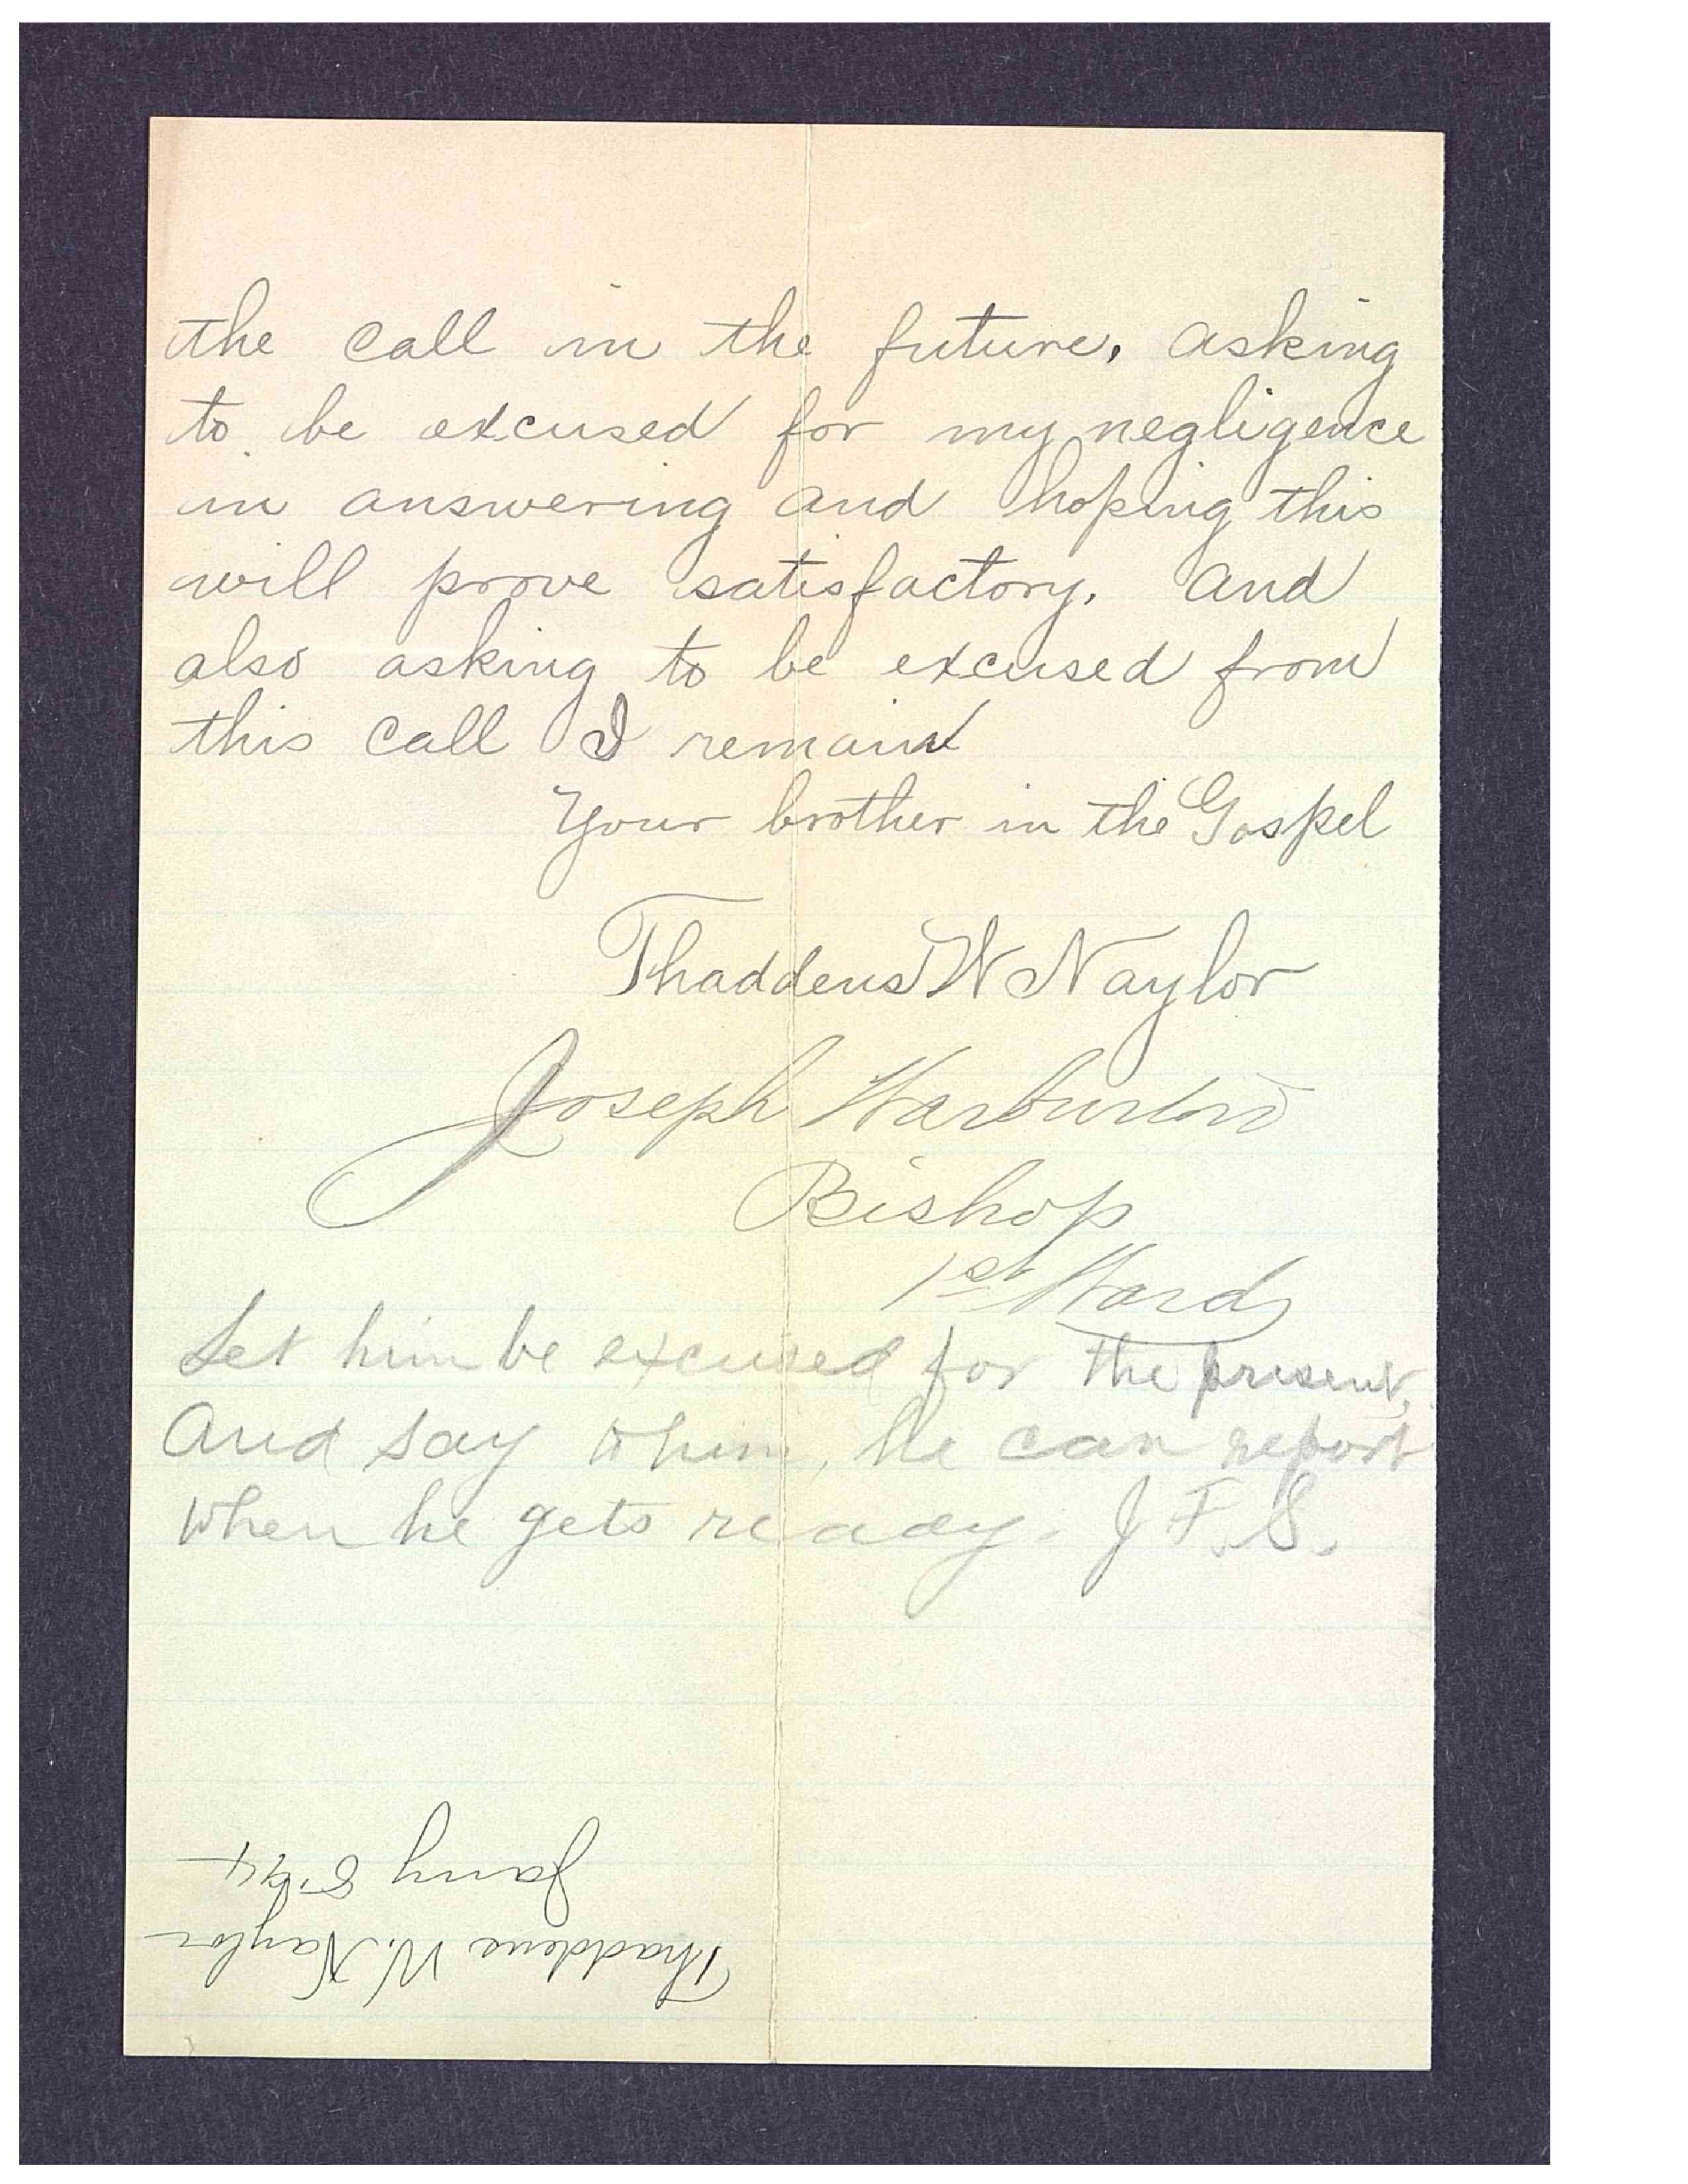 the call in the future, asking
to be excused for my negligence
in answering and hoping this
will prove satisfactory. and
also asking to be excused from
this call I remain
Your brother in the Gospel
Thaddeus W Naylor
Joseph Warburton
Bishop
1st Ward
Let him be excused for the present,
And say to him, he can report
when he gets ready. J F. S.
Thaddeus W. Naylor
Jany 8.